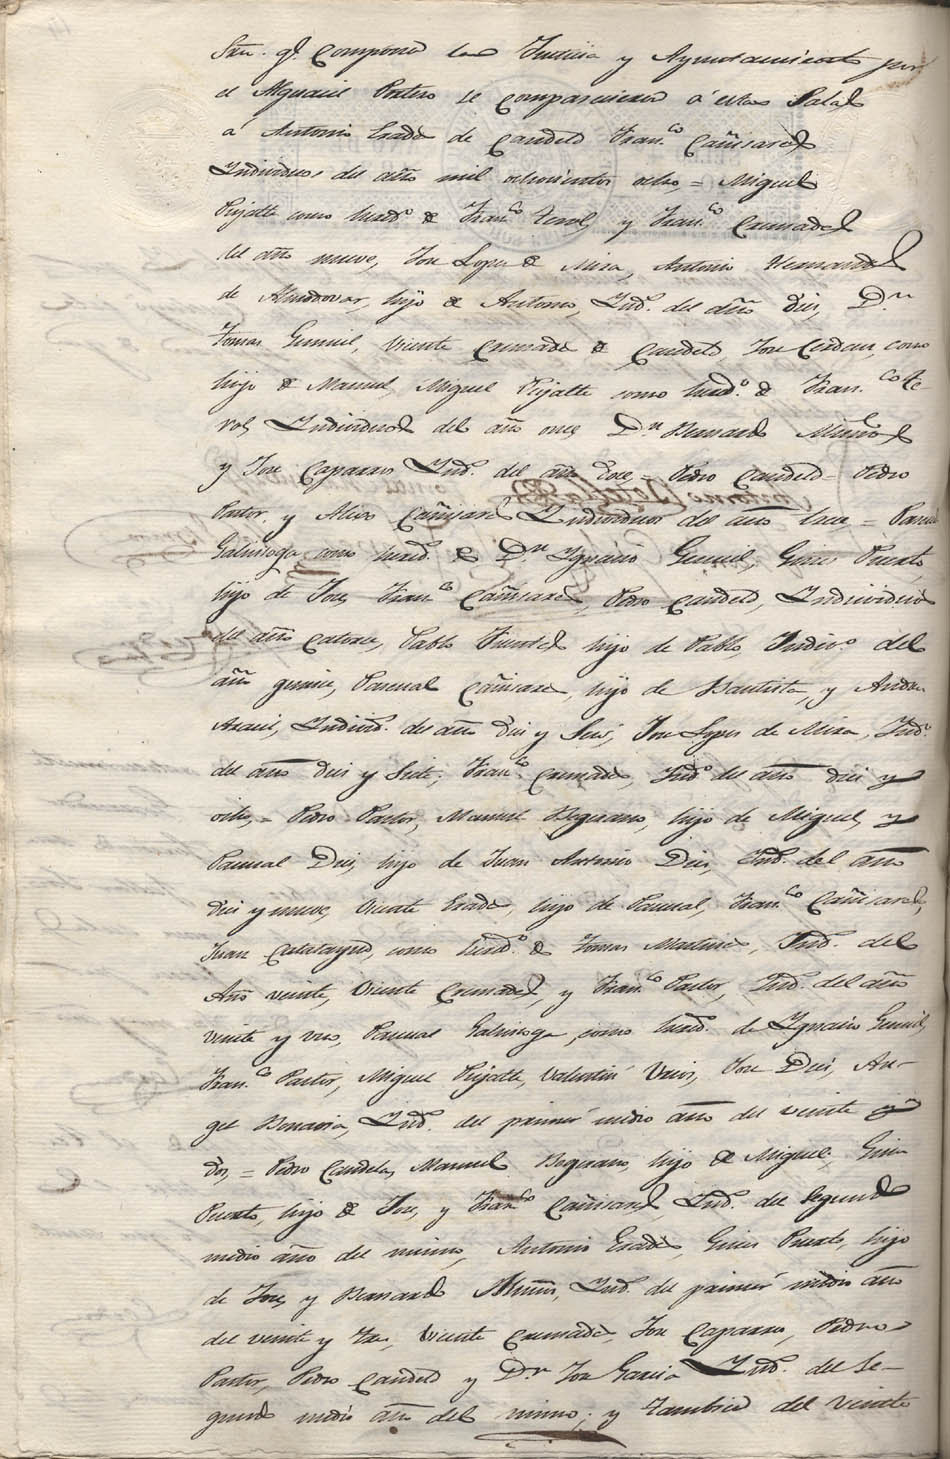 Sres. q.e componen la Justicia y Ayuntamiento por
el Alguacil Portero se comparecieran a estas Salas
a Antonio Erades de Candela Fran.co Cañisares
Individuos del año mil ochocientos ocho = Miguel
Rijalte como hered.o de Fran.co Terol, y Fran.co Cremades
del año nueve, Jose Lopes de Mira, Antonio Hernandes
de Almodovar, hijo de Antonio, Ind.s del año dies, D.n
Tomas Gumiel, Vicente Cremades de Candela, Jose Cerdan, como
hijo de Manuel, Miguel Rijalte como hered.o de Fran.co Te-
rol, Individuos del año once D.n Bernardo
y Jose Caparros Ind.s del año doce = Pedro Candela = Pedro
Pastor, y Cañisares Individuos del año trece =
Galinsoga como hered.o de D.n Ygnacio Gumiel, Gines Puerto,
hijo de Jose, Fran.co Cañisares, Pedro Candela, Individuos
del año catorce, Pablo Fuentes hijo de Pablo, Indiv.o del
año quince, Pascual Cañisares, hijo de Bautista, y Andres
Individ.s del año dies y seis, Jose Lopes de Mira, Ind.o
del año dies y siete, Fran.co Cremades, Ind.o del año dies y
ocho, = Pedro Pastor, Manuel hijo de Miguel, y
Pascual Dies, hijo de Juan Antonio Dies, Ind.s del año
dies y nueve, Vicente Erades, hijo de Pascual, Fran.co Cañisares,
Juan Calatayud, como hered.o de Tomas Martines, Ind.s del
Año veinte, Vicente Cremades, y Fran.co Pastor, Ind.s del año
veinte y uno, Pascual Galinsoga, como hered.o de Ygnacio Gumiel,
Fran.co Pastor, Miguel Rijalte, Valentin Jose Dies, An-
gel Ind.s del primer medio año del veinte y
dos, = Pedro Candela, Manuel hijo de Miguel, Gines
Puerto, hijo de Jose, y Fran.co Cañisares, Ind.s del segundo
medio año del mismo, Antonio Erades, Gines Puerto, hijo
de Jose, y Bernardo Ind.s del primer medio año
del veinte y tres, Vicente Cremades, Jose Caparros, Pedro
Pastor, Pedro Candela y D.n Jose Garcia Ind.s del se-
gundo medio año del mismo; y tambien del veinte